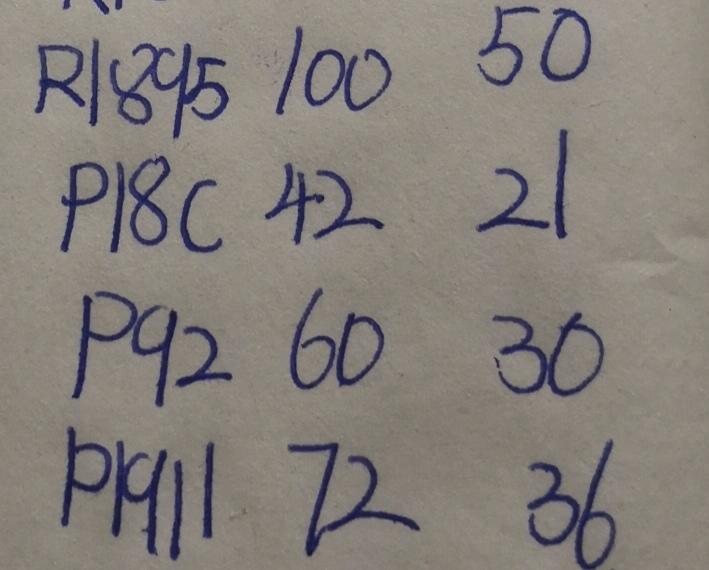 R1895 100 50
P18C 42 21
P92 60 30
P1911 72 36